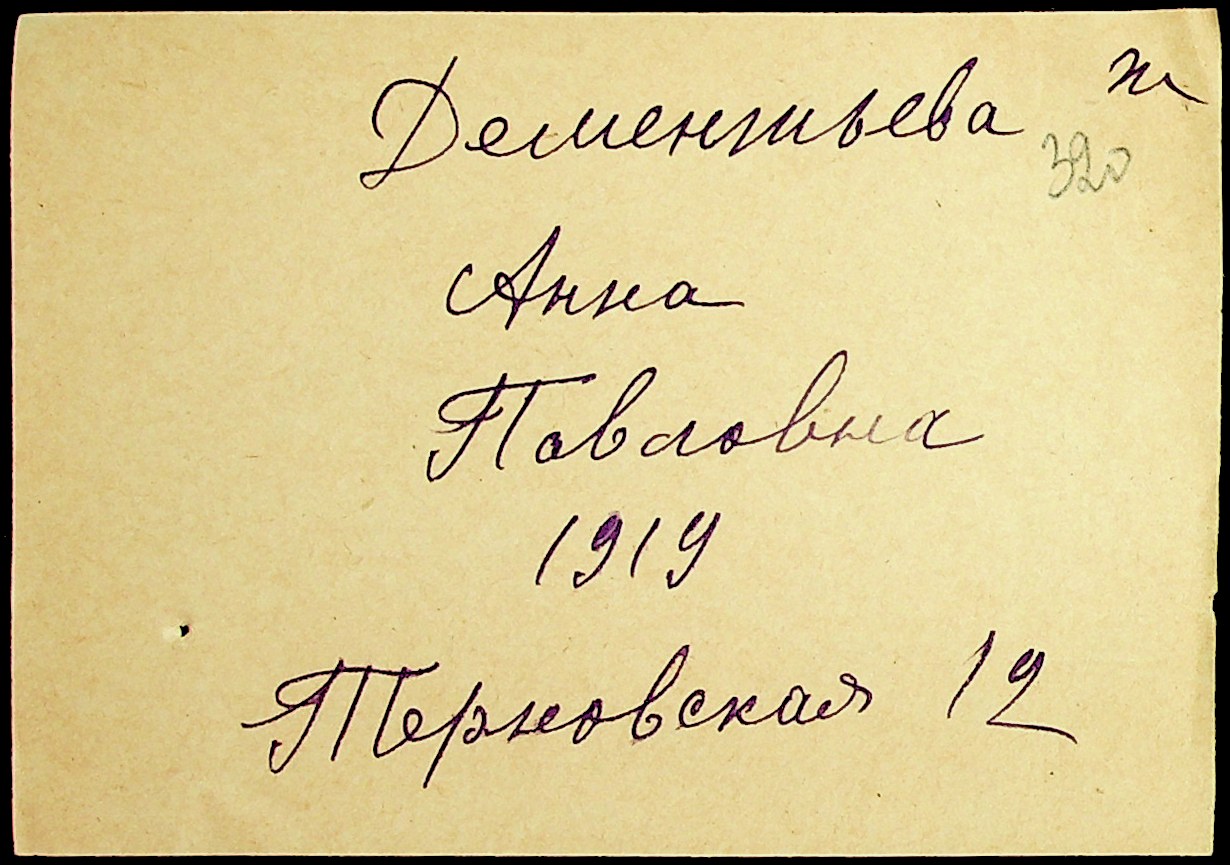 Дементьева ж
320
Анна
Павловна
1919
Терновская 12